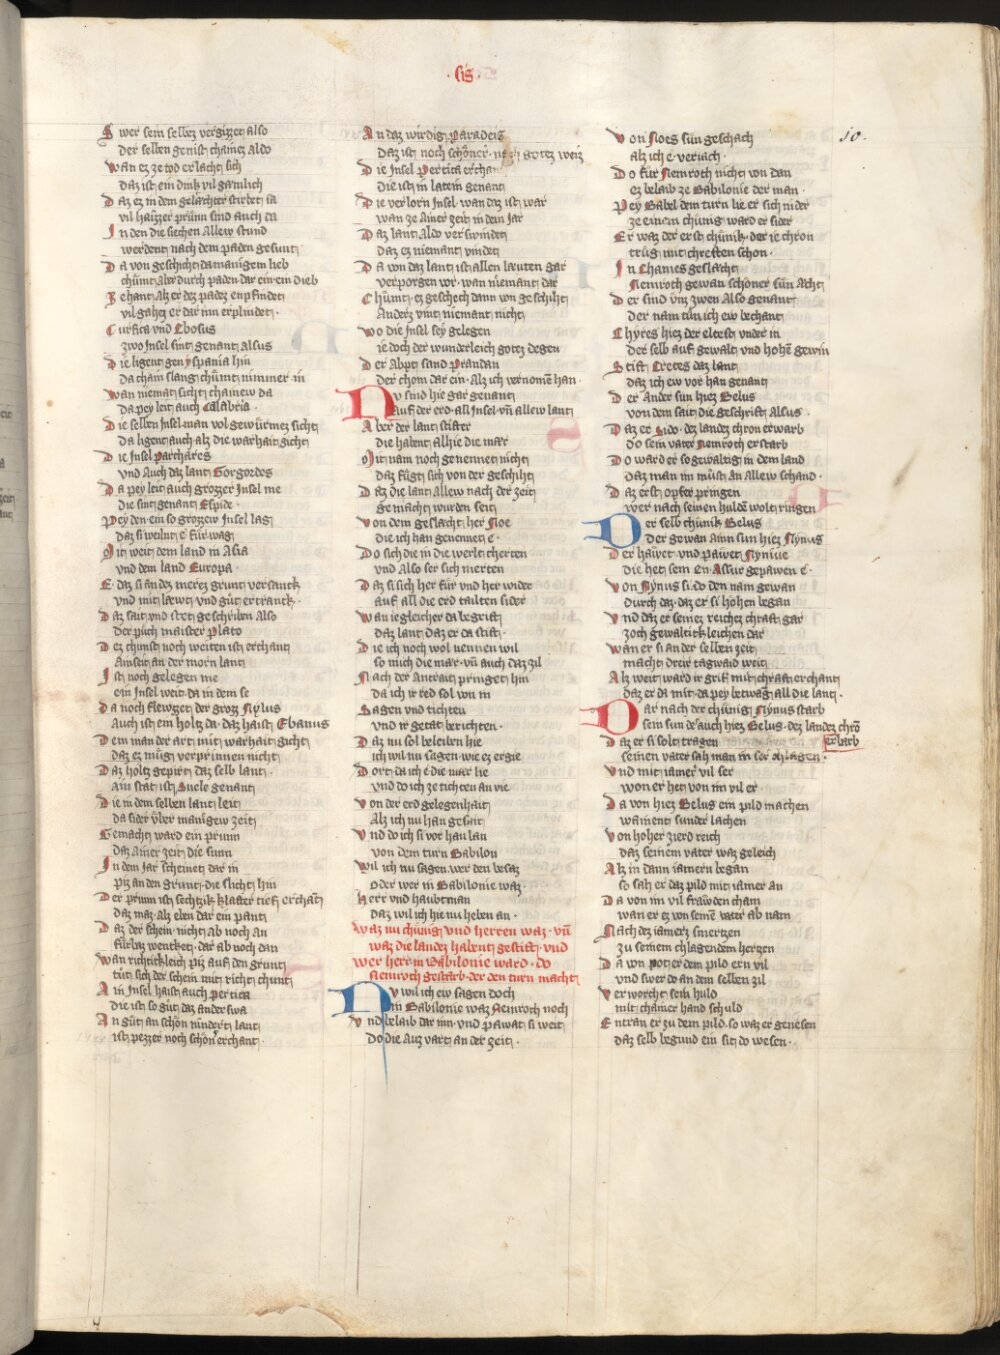 · Gis ·
10.
Swer sein selbez vergizzet also
Der selben genist chainez aldo
Wan ez ze tod erlacht sich
Daz ist ein dinkh vil gamlich
Daz ez in dem gelæchter stirbet sa
vil haizzer prunn sind auch da
In den die siechen allew stund
werdent nach dem paden gesunt
Da von geschicht da manigem lieb
chumt aber durch paden dar ein ein dieb
Zehant alz er dez padez enpfindet
vil gahez er dar inn erplindet ·
Cursica vnd Ebosus
zwo Insel sint genant alsus
Die ligent gen yspania hin
Da cham slang chumt nimmer in
Wan niemat sicht chainew da
Da pey leit auch Calabria ·
Die selben Insel man vol gewurmez sicht
Da ligent auch alz die warhait gicht
Die Insel Parchares
vnd Auch daz lant Gorgodes
Da pey leit auch grozzer Insel me
die sint genant Espide ·
Pey den ein so grozzew Insel lag
daz si weilnt e fur wag
Mit weit dem land in Asia
vnd dem land Europa ·
E daz si an dez merez grunt versanck
vnd mit læwt vnd gut ertranck ·
Daz sait vnd stet geschriben Also
Der puch maister Plato
Dez chunst noch weiten ist erchant
Ainseit an der morn lant
Ist noch gelegen me
ein Insel weit da in dem se
Da noch flewzzet der groz Nylus
Auch ist ein holtz da · daz haist Ebanus
Dem man der art mit warhait gicht
daz ez mug verprinnen nicht
Daz holtz gepirt daz selb lant ·
ain stat ist Suele genant
Die in dem selben lant leit
da sider vber manigew zeit
Gemacht ward ein prunn
daz Ainer zeit die sunn
In dem Jar scheinet dar in
piz an den grunt · die slicht hin
Der prunn ist sechtzik klafter tief erchant
daz maz · alz eben dar ein pant
Daz der schein nicht ab noch an
furbaz wencket · dar ab noch dan
Wan richticleich piz auf den grunt
tut sich der schein mit richt chunt
Ain Insel haist auch pertica
die ist so gut daz ander swa
An gut an schön nindert lant
ist pezzer noch schön erchant ·
An daz wirdig paradeis
Daz ist noch schöner · nach gotez weis
Die Insel Pertica erchant
Die ist in latein genant
Die verlorn Insel · wan dez ist war
wan ze Ainer zeit in dem Jar
Daz lant Aldo verswindet
daz ez niemant vindet
Da von daz lant ist allen læuten gar
verporgen vor · wan niemant dar
Chumt · ez geschech dann von geschiht
Anderz vint niemant nicht
Wo die Insel sey gelegen
ie doch der wunderleich gotez degen
Der Abpt sand Prandan
der chom dar ein · Alz ich vernomē han ·
Nv sind hie gar genant
Auf der erd · all Insel · vn̄ allew lant
Aber der lant stifter
die habent alhie die mær
Mit nam noch genennet nicht
daz fugt sich von der geschiht
Daz die lant allew nach der zeit
gemacht wurden seit
Von dem geslæcht her Noe
die ich han genennet e ·
Do sich die in die werlt cherten
vnd Also ser sich merten
Daz si sich her fur vnd her wider
auf all die erd tailten sider
Wan iegleicher da begreift
daz lant daz er da stift ·
Die ich noch wol nennen wil
so mich die mær · vn̄ auch daz zil
Nach der Antrait pringet hin
da ich ir red sol von in
Sagen vnd tichten
vnd ir getat berichten ·
Daz nu sol beleiben hie
ich wil nu sagen · wie ez ergie
Dort da ich e die mær lie
vnd do ich ze tichten an vie
Von der erd gelegenhait
Alz ich nu han gesait
Vnd do ich si vor han lan
von dem turn Babilon
Wil ich nu sagen · wer den besaz
oder wer in Babilonie waz ·
Herr vnd haubtman
daz wil ich hie nu heben an ·
Waz nu chünig vnd herren waz · vn̄
waz die landez habent gestift · vnd
wer herr in Babilonie ward · do
Nemroth gestarb · der den turn macht
Nv wil ich ew sagen doch
in Babilonie waz Nemroth noch
Vnd belaib dar inn · vnd pawat si weit
Do die auz vart an der zeit ·
Von Noes sün geschach
alz ich e · veriach ·
Do für Nemroth nicht von dan
ez belaib ze Babilonie der man ·
Pey Babel dem turn lie er sich nider
ze einem chunig ward er sider
Er waz der erst chunik · der ie chron
trug mit chreften schon ·
In Chames geslæcht
Nemroth gewan schöner sün Acht
Der sind vnz zwen Also genant
der nam tun ich ew bechant
Chyres hiez der eltest vnder in
der selb auf gewalt vnd hohē gewin
Stift Cretes daz lant
daz ich ew vor han genant
Der ander sun hiez Belus
von dem sait die geschrift Alsus ·
Daz er Lido · dez landez chron erwarb
do sein vater Nemroth erstarb
Do ward er so gewaltig in dem land
daz man im müst an allew schand ·
Daz erst opfer pringen
wer nach seinen huldē wolt ringen
Der selb chunik Belus
der gewan ainn sun hiez Nynus
Der hawet vnd pawet Nyniue
die het sein en · Assur gepawen e ·
Von Nynus si · do den nam gewan
durch daz · daz er si hohen began
Vnd daz er seinez reichez chraft gar
zoch gewalticleichen dar
Wan er si an der selben zeit
macht dreir tagwaid weit
Alz weit ward ir grif mit chraft erchant
daz er da mit · da pey betwang all die lant ·
Dar nach der chunig Nynus starb
sein sun de auch hiez Belus · dez landez chrō
erbarb
Daz er si solt tragen
seinen vater sah man in ser chlagen ·
Vnd mit iamer vil ser
won er het von im vil er
Da von hiez Belus ein pild machen
wainent sunder lachen
Von hoher zierd reich
daz seinem vater waz geleich
Alz in dann iamern began
so sah er daz pild mit iamer an
Da von im vil frawden cham
wan er ez von seinē vater ab nam
Nach dez iamerz smertzen
zu seinem chlagendem hertzen
Da von pot er dem pild ern vil
vnd swer do an dem selben zil
Verworcht sein huld
mit chainer hand schuld
Entran er zu dem pild · so waz er genesen
daz selb begund ein sit do wesen ·